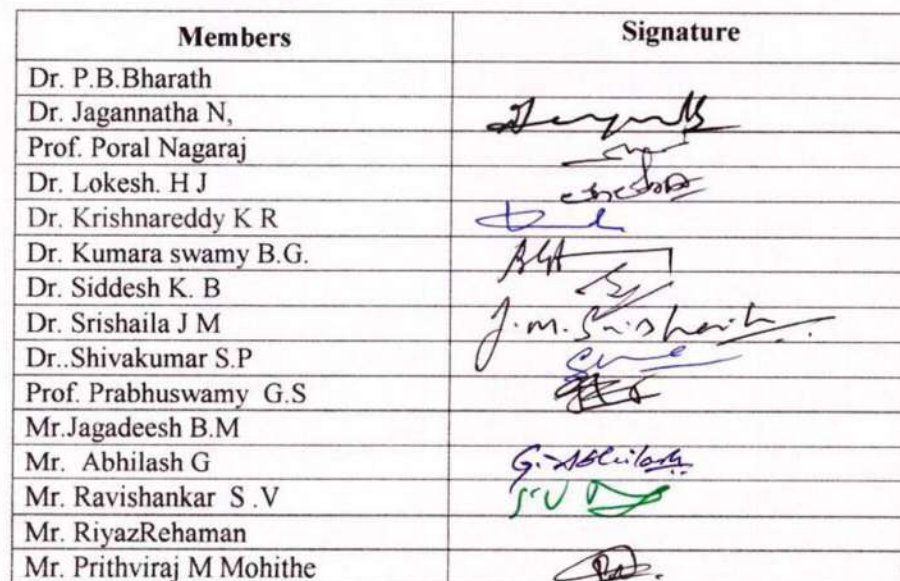 Members Signature
Dr. P.B.Bharath
Dr. Jagannatha N,
Prof. Poral Nagaraj
Dr. Lokesh. H J
Dr. Krishnareddy K R
Dr. Kumara swamy B.G.
Dr. Siddesh K. B
Dr. Srishaila J M J.m. Srishaila
Dr..Shivakumar S.P
Prof. Prabhuswamy G.S
Mr.Jagadeesh B.M
Mr. Abhilash G G. Abhilash
Mr. Ravishankar S .V S.V
Mr. RiyazRehaman
Mr. Prithviraj M Mohithe